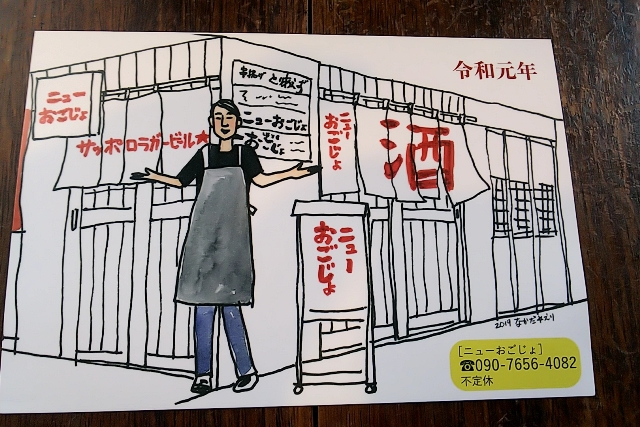 令和元年
ニュー
おごじょ
サッポロラガービール★
ニューおごじょ
おごじょ
ニュー
おごじょ
酒
ニュー
おごじょ
2019
[ニューおごじょ]
☎090-7656-4082
不定休